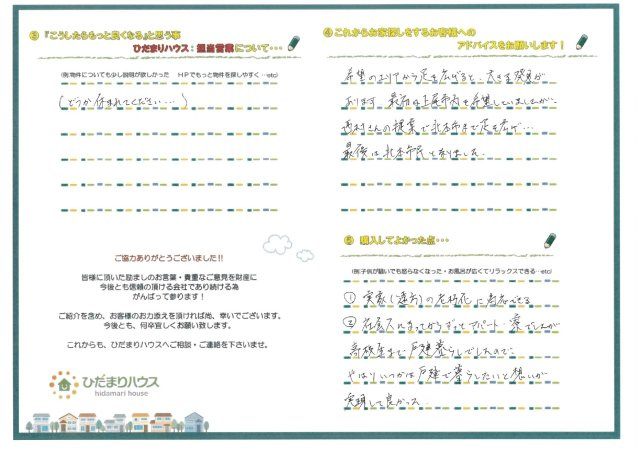 ③『こうしたらもっと良くなる』と思う事
ひだまりハウス：担当営業について・・・
(例)物件についても少し説明が欲しかった　ＨＰでもっと物件を探しやすく…etc)
ご協力ありがとうございました!!
皆様に頂いた励ましのお言葉・貴重なご意見を財産に
今後とも信頼の頂ける会社であり続ける為
がんばって参ります！
ご紹介を含め、お客様のお力添えを頂ければ尚、幸いでございます。
今後とも、何卒宜しくお願い致します。
これからも、ひだまりハウスへご相談・ご連絡を下さいませ。
ひだまりハウス
hidamari house
④これからお家探しをするお客様への
アドバイスをお願いします！
希望のエリアから足を広げると、大きな発見が
あります。最初は上尾市内を希望していましたが、
西村さんの提案で北本市まで足を広げ…
最後は北本市民となりました。
⑤　購入してよかった点・・・
(例)子供が騒いでも怒らなくなった・お風呂が広くてリラックスできる…etc)
① 実家(遠方)の老朽化に対応できる
② 社会人になってからずっとアパート・寮でしたが
高校生まで戸建暮らしでしたので、
やはりいつかは戸建で暮らしたいと想いが
実現して良かった。